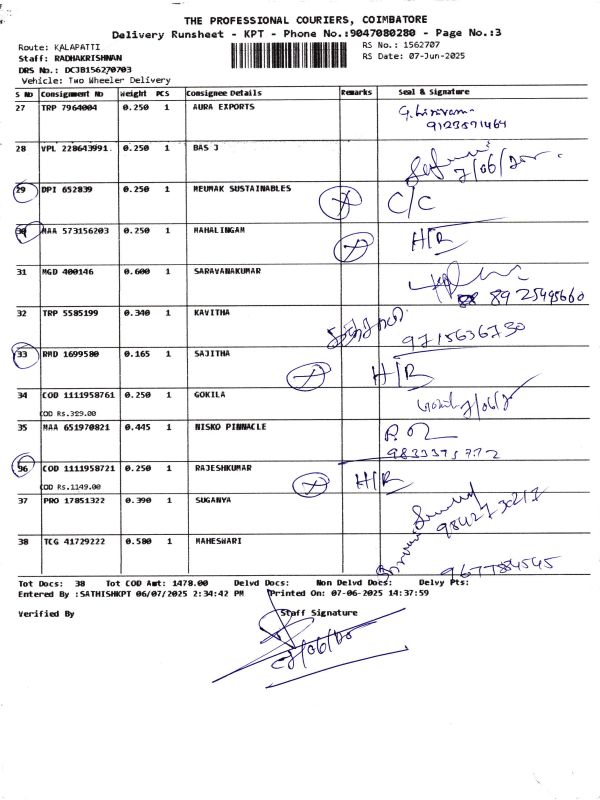 THE PROFESSIONAL COURIERS, COIMBATORE
Delivery Runsheet - KPT - Phone No.:9047080280 - Page No.:3
Route: KALAPATTI
RS No.: 1562707
Staff: RADHAKRISHNAN
RS Date: 07-Jun-2025
DRS No.: DCJB156270703
Vehicle: Two Wheeler Delivery
S No Consignment No Weight PCS Consignee Details Remarks Seal & Signature
27 TRP 7964004 0.250 1 AURA EXPORTS
28 VPL 228643991. 0.250 1 BAS J
29 DPI 652839 0.250 1 MEUMAK SUSTAINABLES C/C
30 MAA 573156203 0.250 1 MAHALINGAM H/R
31 MGD 400146 0.600 1 SARAVANAKUMAR
8925495660
32 TRP 5585199 0.340 1 KAVITHA
9715636730
33 RMD 1699580 0.165 1 SAJITHA H/R
34 COD 1111958761 0.250 1 GOKILA
COD Rs.329.00
35 MAA 651970821 0.445 1 NISKO PINNACLE
36 COD 1111958721 0.250 1 RAJESHKUMAR H/R
COD Rs.1149.00
37 PRO 17851322 0.390 1 SUGANYA
38 TCG 41729222 0.580 1 MAHESWARI
9677884545
Tot Docs: 38 Tot COD Amt: 1478.00 Delvd Docs: Non Delvd Docs: Delvy Pts:
Entered By :SATHISHKPT 06/07/2025 2:34:42 PM Printed On: 07-06-2025 14:37:59
Verified By Staff Signature